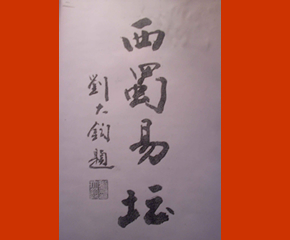 西蜀易坛
劉大鈞題